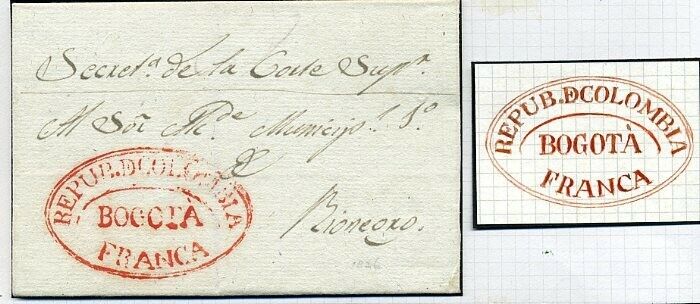 Secret.ª de la Corte Sup.ʳ
Al Sōr Al.ᵈᵉ Municip.ˡ 1.º
de
Rionegro.
REPUB. DCOLOMBIA
BOGOTÀ
FRANCA
REPUB. DCOLOMBIA
BOGOTÀ
FRANCA